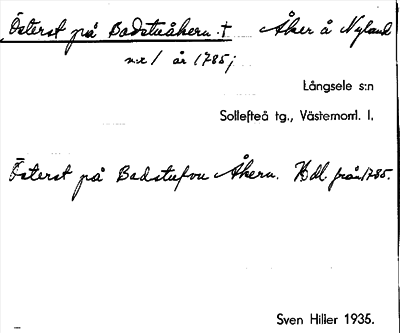 Österst på Badstuåkern. † Åker å Nyland
n:r 1 år 1785;
Långsele s:n
Sollefteå tg., Västernorrl. l.
Österst på Badstufvu Åkern. Hdl. från 1785.
Sven Hiller 1935.